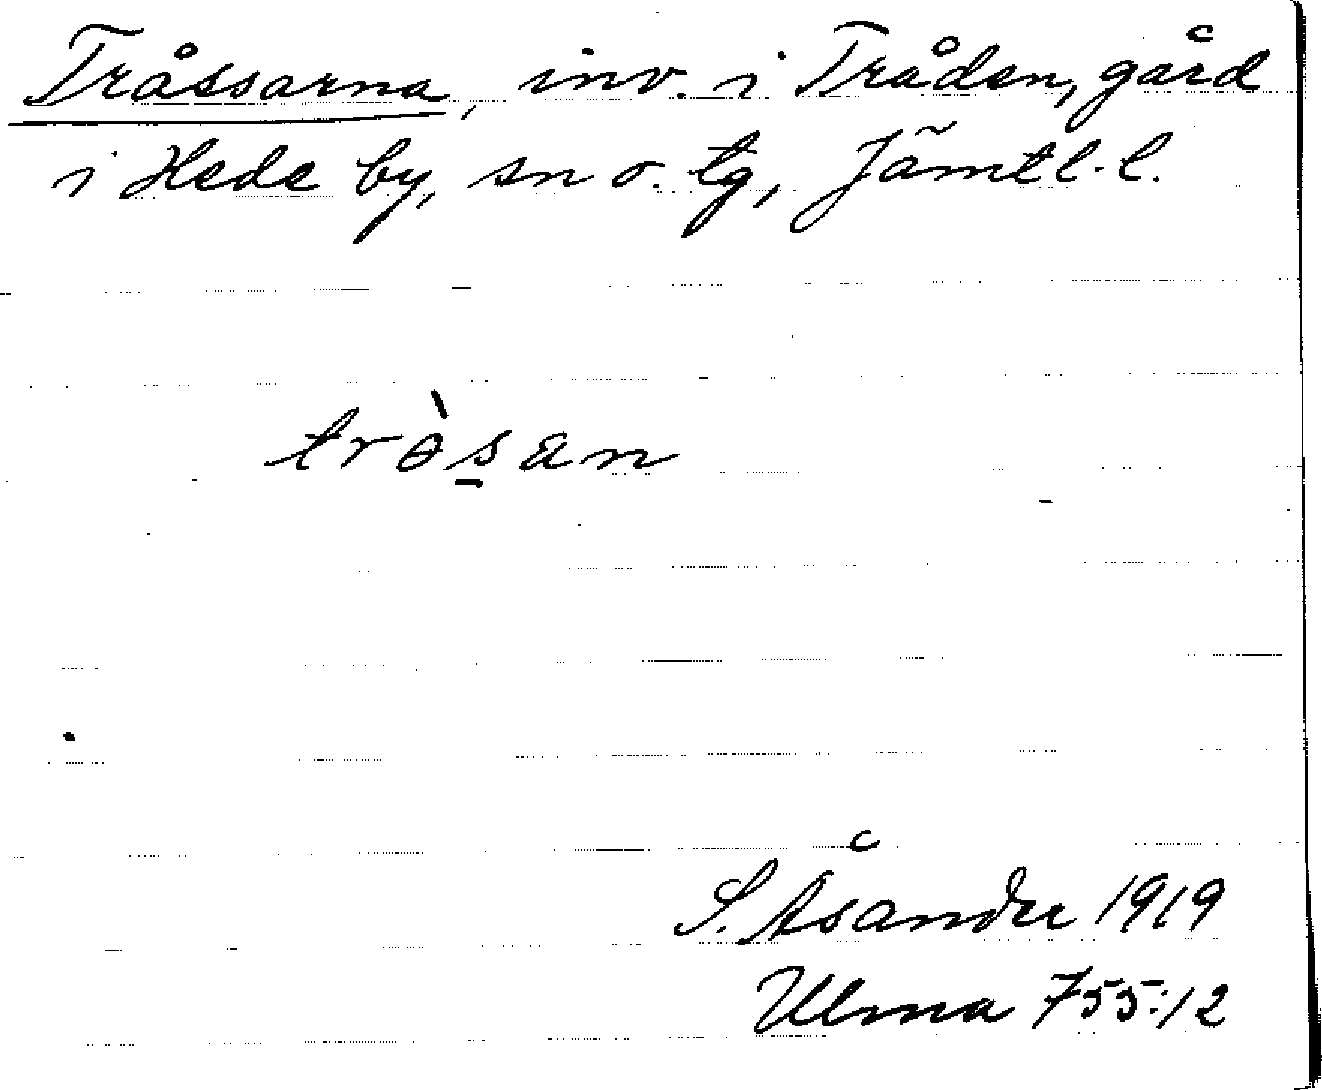 Tråssarna, inv. i Tråden, gård
i Hede by, sn o. tg, Jämtl. l.
trɵ̀s̱an
S. Åsander 1919
Ulma 755:12